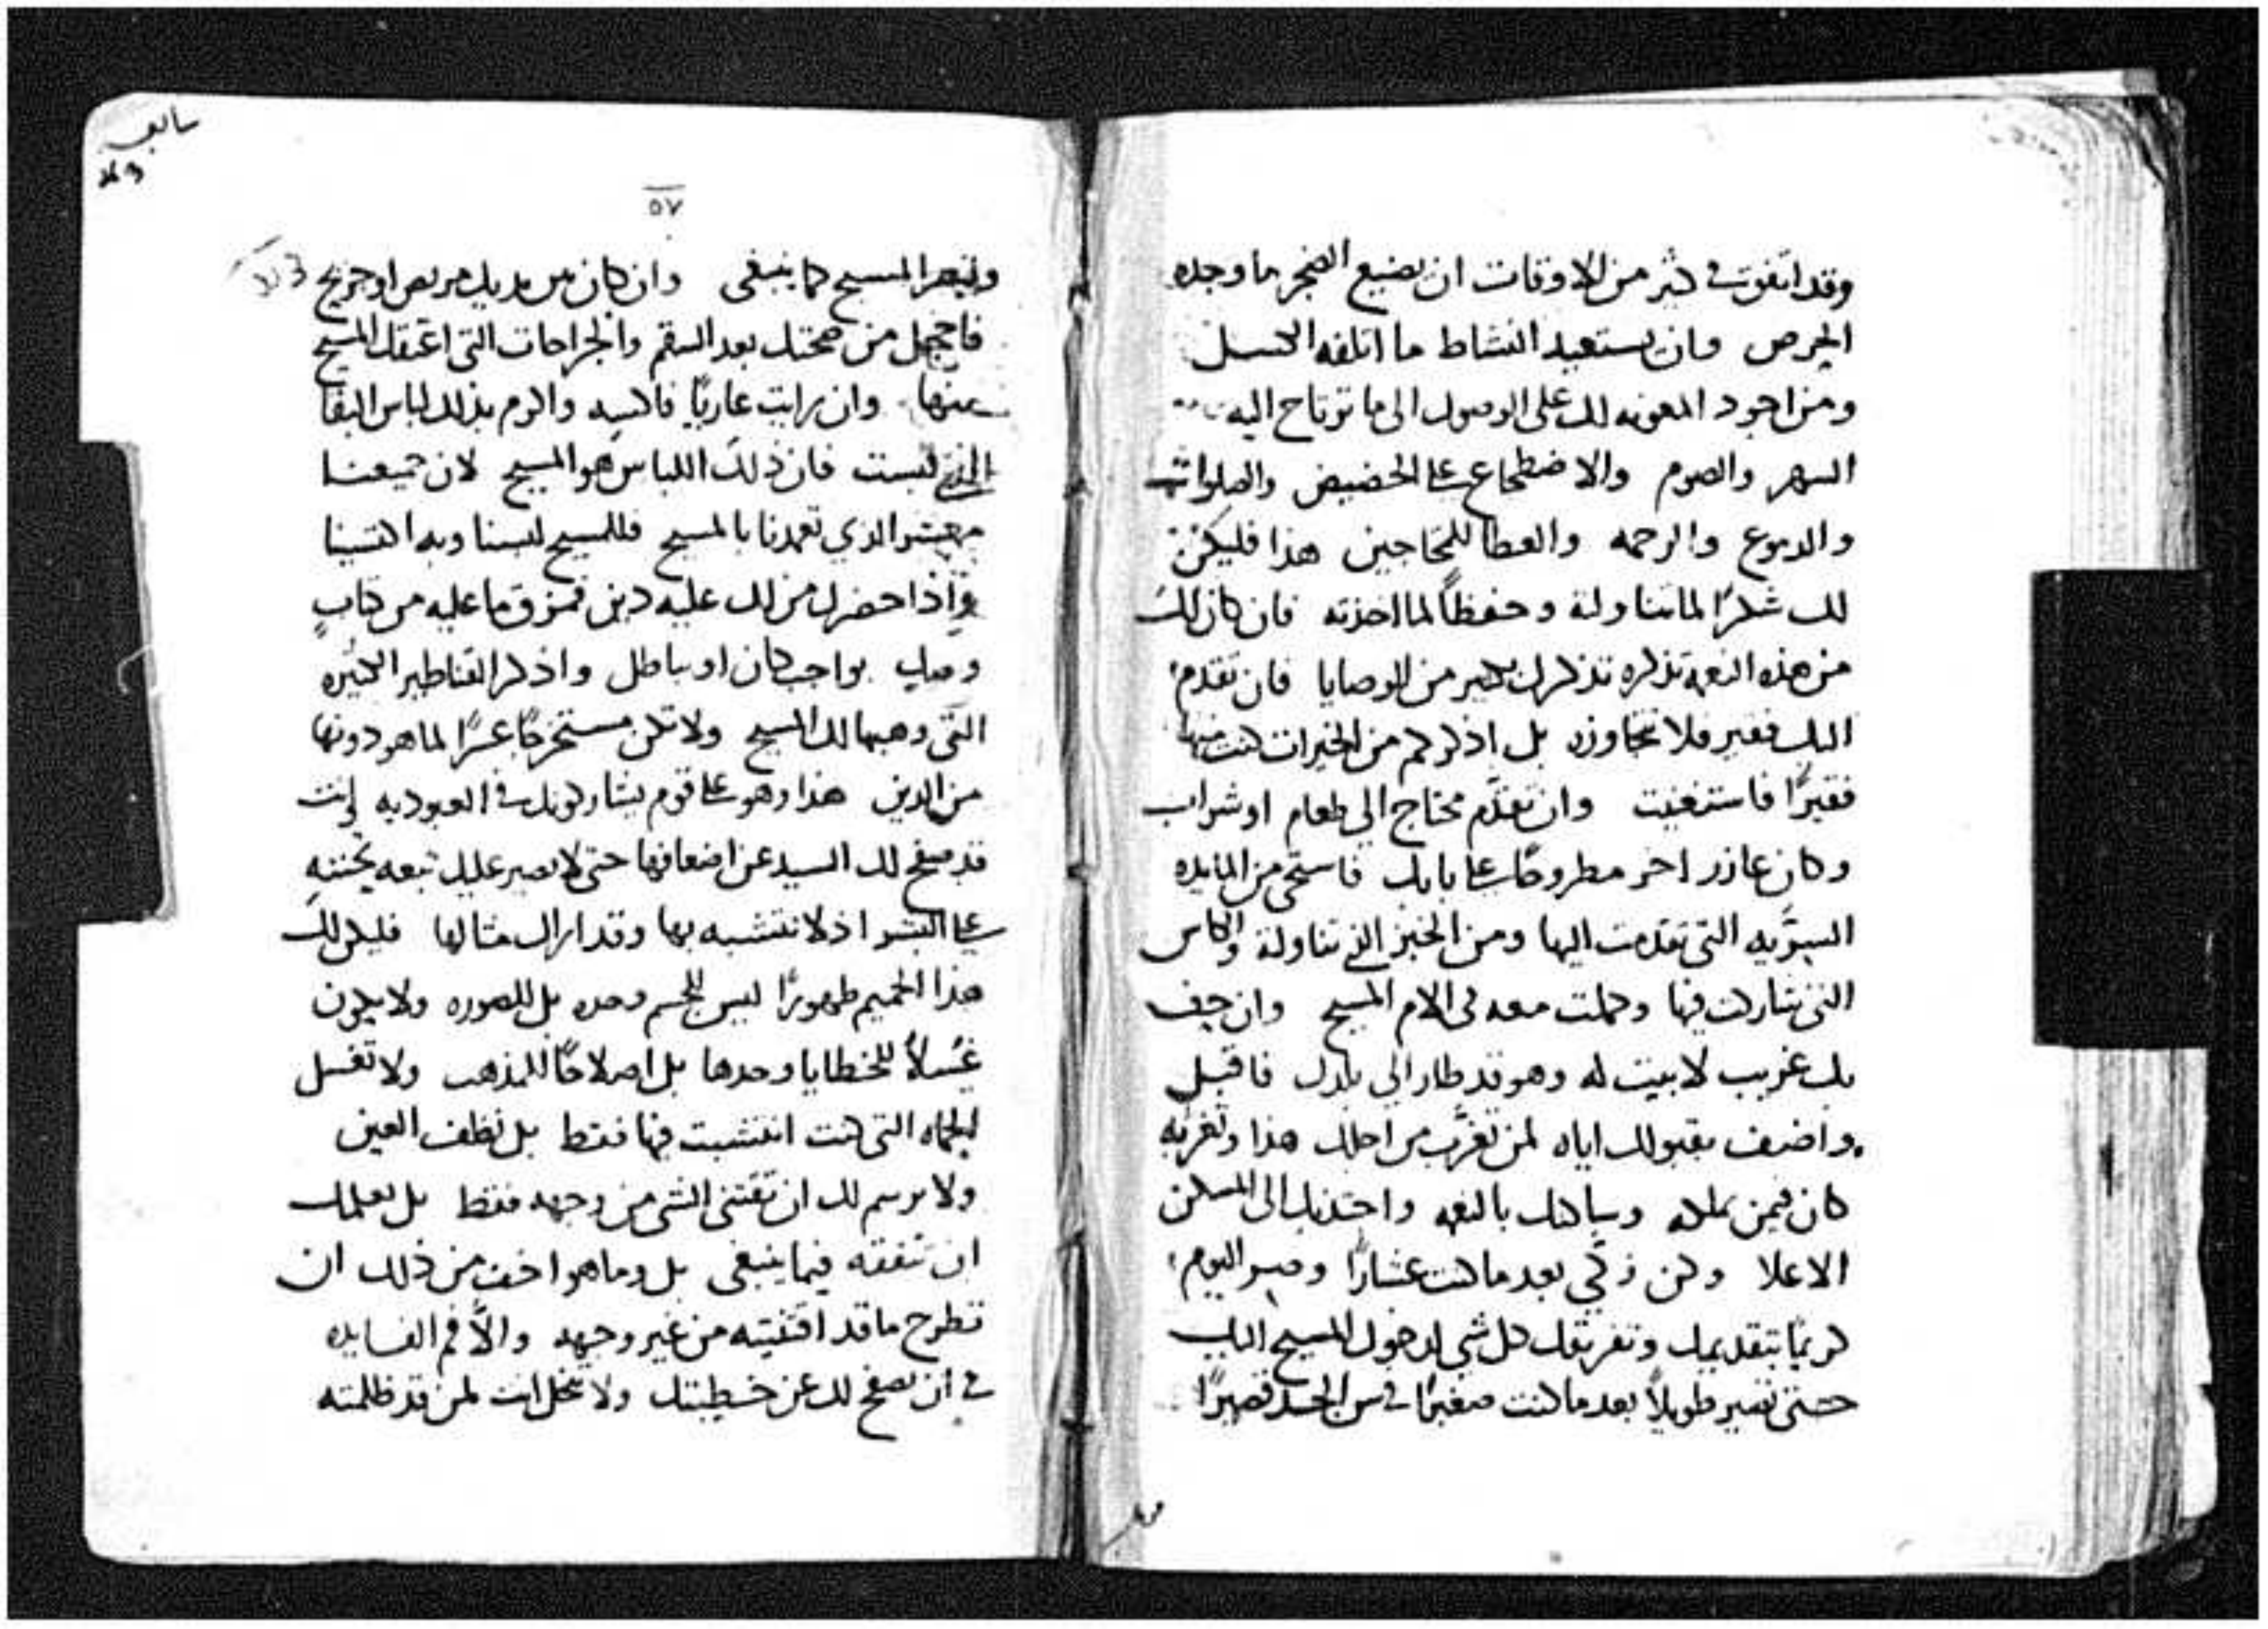 وقد اتفق في كثير من الاوقات ان يضيع الضجر ما وجده
الحرص وان يستعيد النشاط ما اتلفه الكسل
ومن اجود المعونه لك على الوصول الى ما ترتاح اليه
السهر والصوم والاضطجاع على الحضيض والصلوات
والدموع والرحمه والعطا للمحتاجين هذا فليكن
لك شكرًا لما تناولته وحفظًا لما اخذته فان كان لك
من هذه النعمه تذكره تذكرك بكثير من الوصايا فان تقدم
اليك فقير فلا تتجاوزه بل اذكر كم من الخيرات كنت منها
فقيرًا فاستغنيت وان تقدم محتاج الى طعام او شراب
وكان عازر اخر مطروحًا على بابك فاستحى من المايده
السريه التي تقدمت اليها ومن الخبز الذي تناولته والكاس
التي شاركت فيها وكملت معه في الام المسيح وان حف
بك غريب لا بيت له وهو قد طار الى بلدك فاقبل
واضف بقبولك اياه لمن تغرب من اجلك هذا وتغربه
كان فيمن يملكه وساكنك بالنعمه واجتذبك الى المسكن
الاعلا وكن زكي بعد ما كنت عشارًا وصر اليوم
كريمًا بتقديمك وتفريقك كل شي لدخول المسيح اليك
حتى تصير طويلاً بعد ما كنت صغيرًا في سن الجسد قصيرًا
٥٧
وتبصر المسيح كما ينبغى وان كان بين يديك مريض او جريح
فاخجل من صحتك بعد السقم والجراحات التى اعتقك المسيح
منها وان رايت عاريًا فاكسيه واكرم بذلك لباس البقا
الذي لبست فان ذلك اللباس هو المسيح لان جميعنا
معشر الذي تعمدنا بالمسيح فللمسيح لبسنا وبه اكتسينا
واذا حضرك من لك عليه دين فمزق ما عليه من كتاب
وصك بواجب كان او باطل واذكر القناطير الكثيره
التى وهبها لك المسيح ولا تكن مستخرجًا عسرًا لما هو دونها
من الدين هذا وهو على قوم يشاركونك في العبوديه وانت
قد صفح لك السيد عن اضعافها حتى لا يصير عليك تبعه تحننه
على البشر اذ لا تتشبه بها وقد اراك مثالها فليكن لك
هذا الحميم طهورًا ليس للجسم وحده بل للصوره ولا يكون
غسلاً للخطايا وحدها بل اصلاحًا للمذهب ولا تغسل
الحماه التى كنت انتشبت فيها فقط بل نظف العين
ولا يرسم لك ان تقتنى الشى من وجهه فقط بل يعلمك
ان تنفقه فيما ينبغى بل وما هو اخف من ذلك ان
تطرح ما قد اقتنيته من غير وجهه والاّ فم الفايده
في ان يصفح لك عن خطيتك ولا تحل انت لمن قد ظلمته